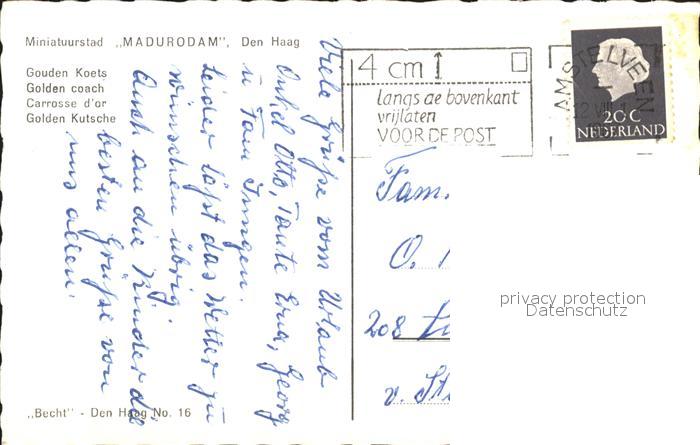 Miniatuurstad „MADURODAM”, Den Haag
Gouden Koets
Golden coach
Carrosse d'or
Golden Kutsche
Viele Grüße vom Urlaub
Onkel Otto, Tante Erna, Georg
u. Fam. Irmgen.
Leider läßt das Wetter zu
wünschen übrig.
Auch an die Kinder die
besten Grüße von
uns allen.
„Becht" - Den Haag No. 16
4 cm
langs de bovenkant
vrijlaten
VOOR DE POST
AMSTELVEEN
12 VIII
20C
NEDERLAND
Fam.
O.
208
v. St
privacy protection
Datenschutz